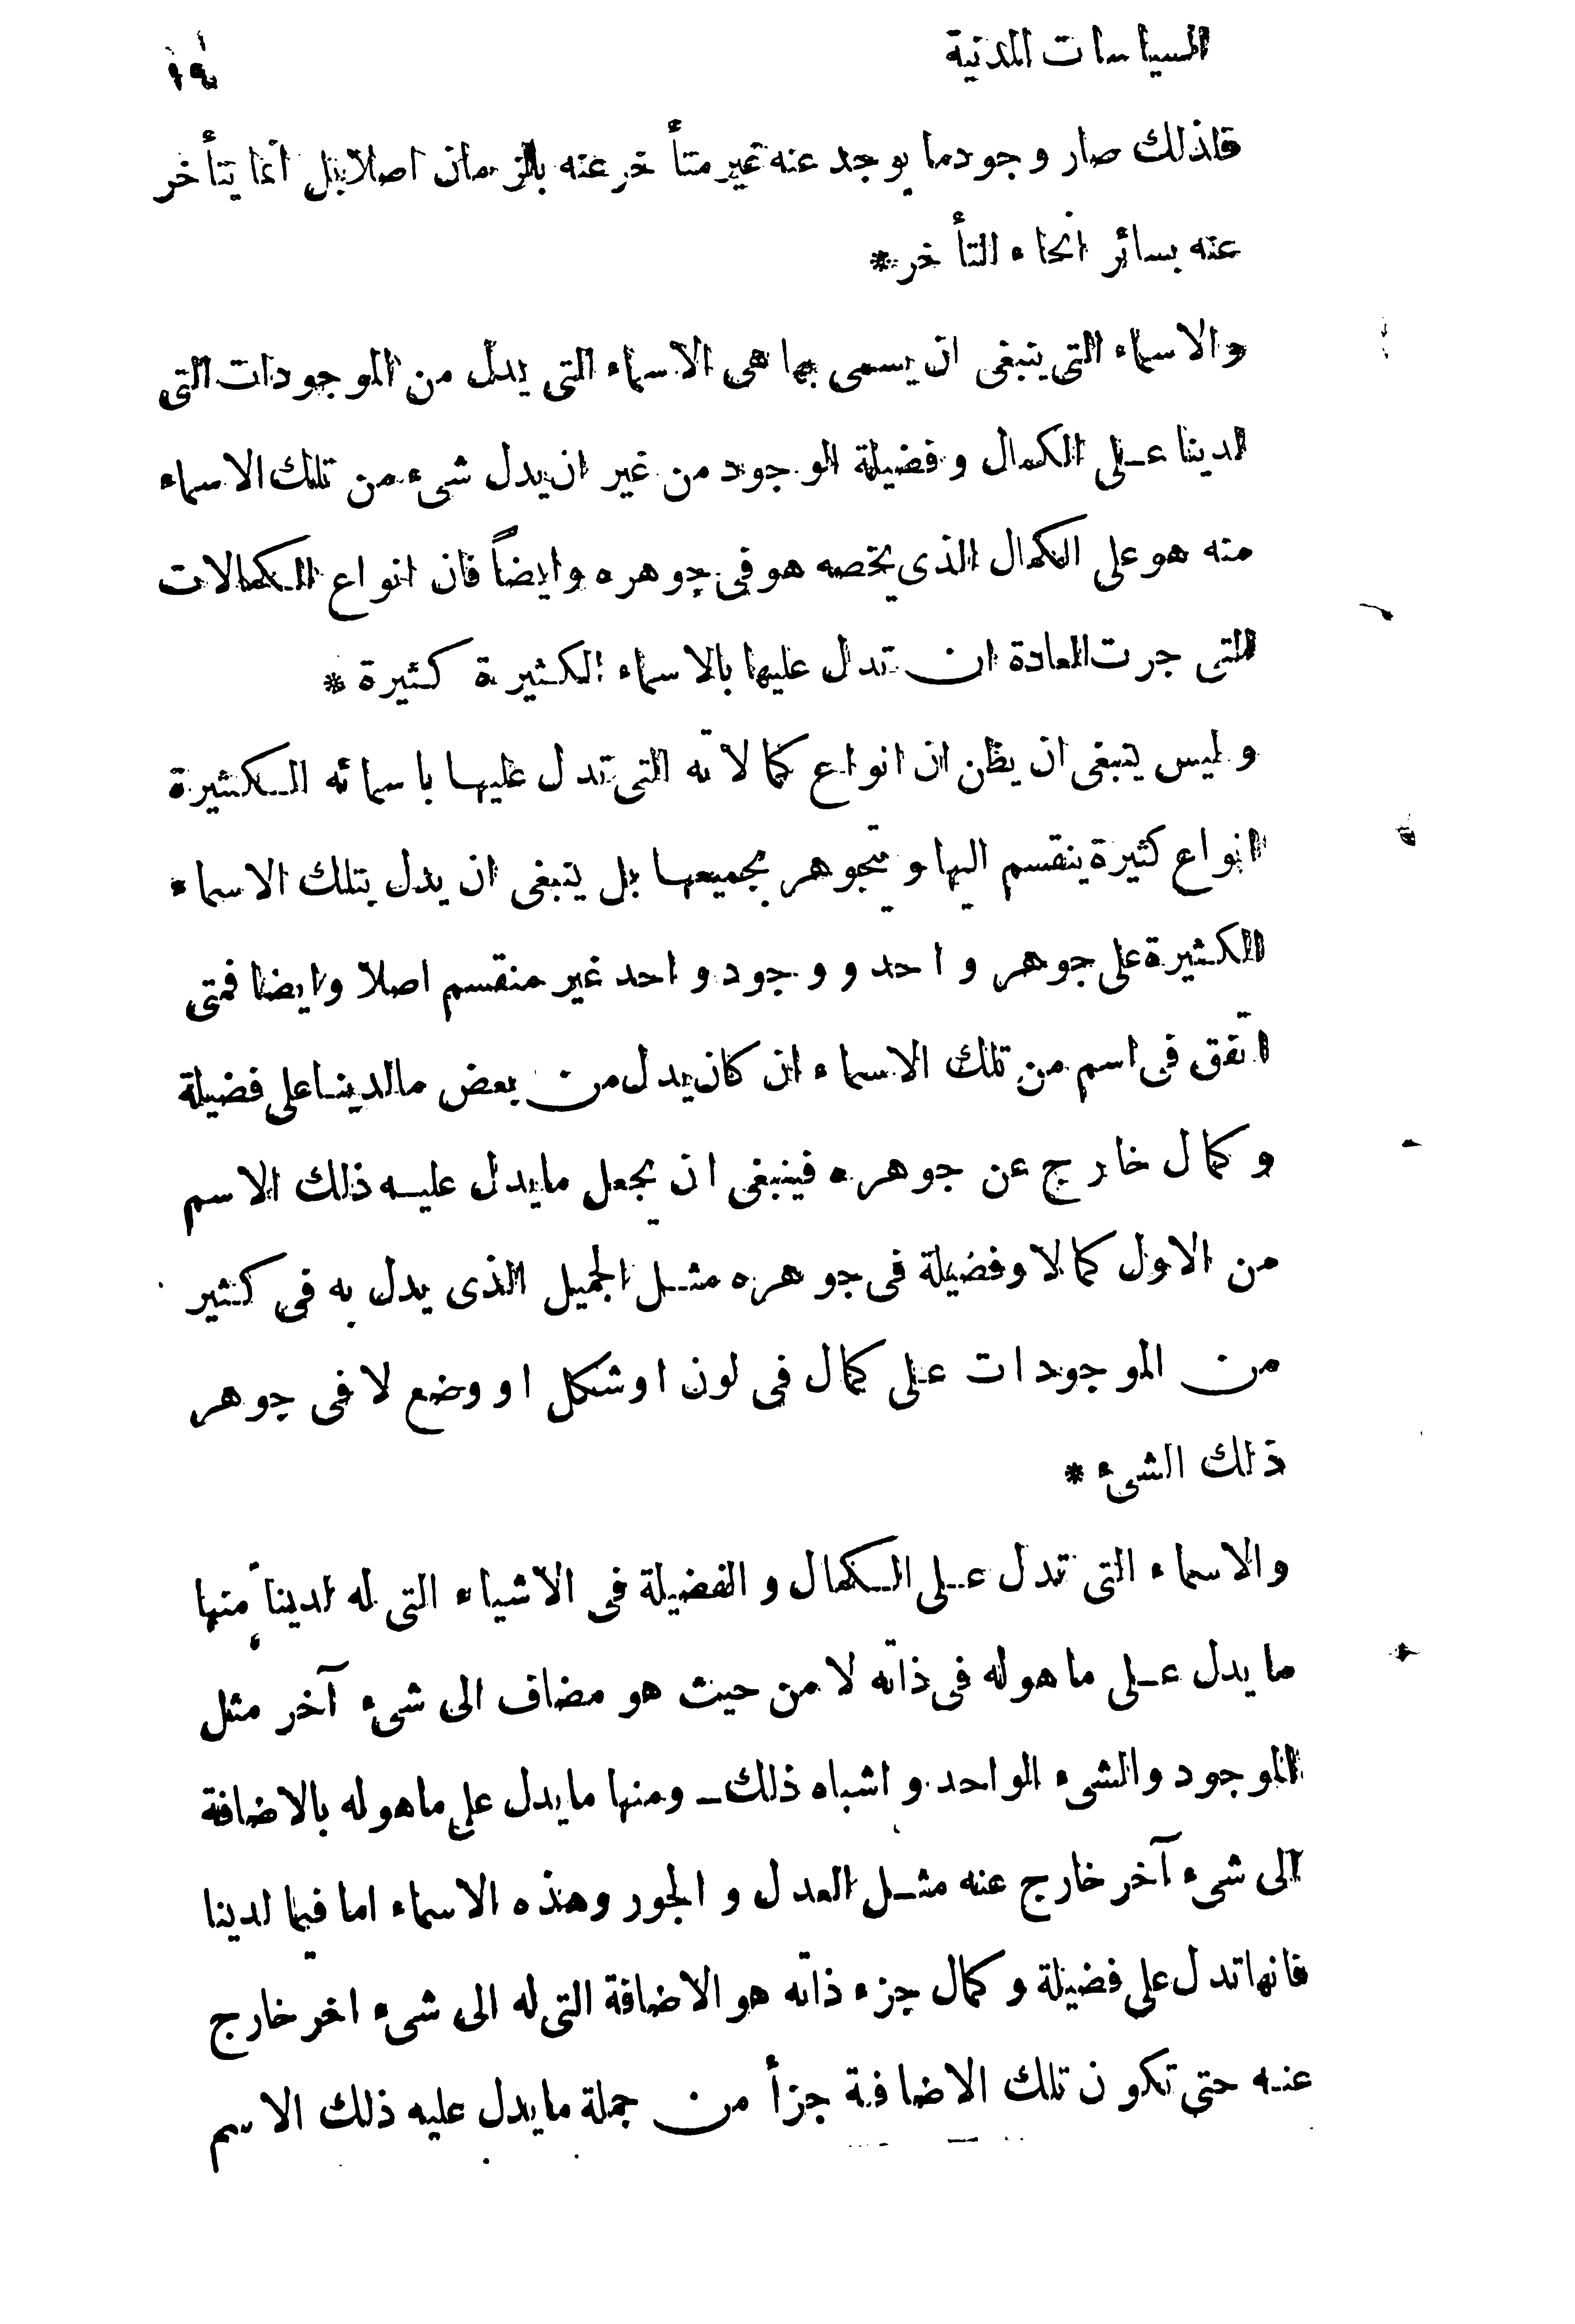 السياسات المدنية ١٩
فلذلك صار وجود ما يوجد عنه غير متأخر عنه بالزمان اصلا بل انما يتأخر
عنه بسائر انحاء التأخر *
والاسماء التى ينبغى ان يسمى بها هى الاسماء التى يدل من الموجودات التى
لدينا على الكمال وفضيلة الوجود من غير ان يدل شىء من تلك الاسماء
منه هو على الكمال الذى يخصه هو فى جوهره وايضاً فان انواع الكمالات
التى جرت العادة ان تدل عليها بالاسماء الكثيرة كثيرة *
وليس ينبغى ان يظن ان انواع كمالاته التى تدل عليها باسمائه الكثيرة
انواع كثيرة ينقسم اليها ويتجوهر بجميعها بل ينبغى ان يدل بتلك الاسماء
الكثيرة على جوهر واحد ووجود واحد غير منقسم اصلا وايضا فمتى
اتفق فى اسم من تلك الاسماء ان كان يدل من بعض مالدينا على فضيلة
وكمال خارج عن جوهره فينبغى ان يجعل مايدل عليه ذلك الاسم
من الاول كمالا وفضيلة فى جوهره مثل الجميل الذى يدل به فى كثير
من الموجودات على كمال فى لون اوشكل او وضع لا فى جوهر
ذلك الشىء *
والاسماء التى تدل على الكمال والفضيلة فى الاشياء التى له لدينا منها
ما يدل على ما هو له فى ذاته لا من حيث هو مضاف الى شىء آخر مثل
الموجود والشىء الواحد واشباه ذلك ــ ومنها مايدل على ماهوله بالاضافة
الى شىء آخر خارج عنه مثل العدل والجور وهذه الاسماء اما فيما لدينا
فانها تدل على فضيلة وكمال جزء ذاته هو الاضافة التى له الى شىء اخر خارج
عنه حتى تكون تلك الاضافة جزأ من جملة مايدل عليه ذلك الاسم